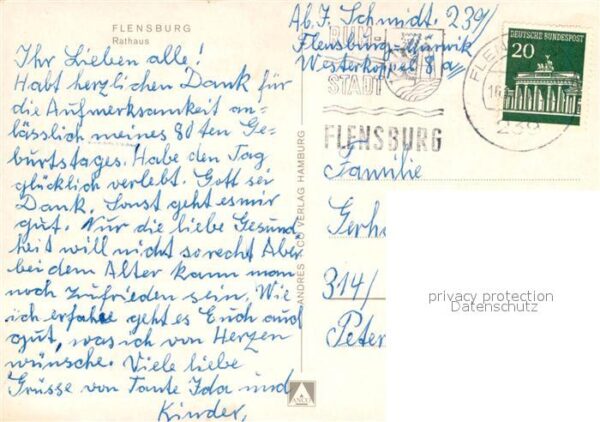 FLENSBURG
Rathaus
Ihr Lieben alle!
Habt herzlichen Dank für
die Aufmerksamkeit an-
lässlich meines 80ten Ge-
burtstages. Habe den Tag
glücklich verlebt. Gott sei
Dank. Sonst geht es mir
gut. Nur die liebe Gesund
heit will nicht so recht Aber
bei dem Alter kann man
noch zufrieden sein. Wie
ich erfahre geht es Euch auch
gut, was ich von Herzen
wünsche. Viele liebe
Grüsse von Tante Ida und
Kinder,
ANDRES + CO VERLAG HAMBURG
ANCO
Ab. J. Schmidt. 239/
Flensburg-Mürwik
Westerkoppel 8a
RUM-
STADT
FLENSBURG
DEUTSCHE BUNDESPOST
20
FLEN
239
Familie
Gerh
314/
Peter
privacy protection
Datenschutz